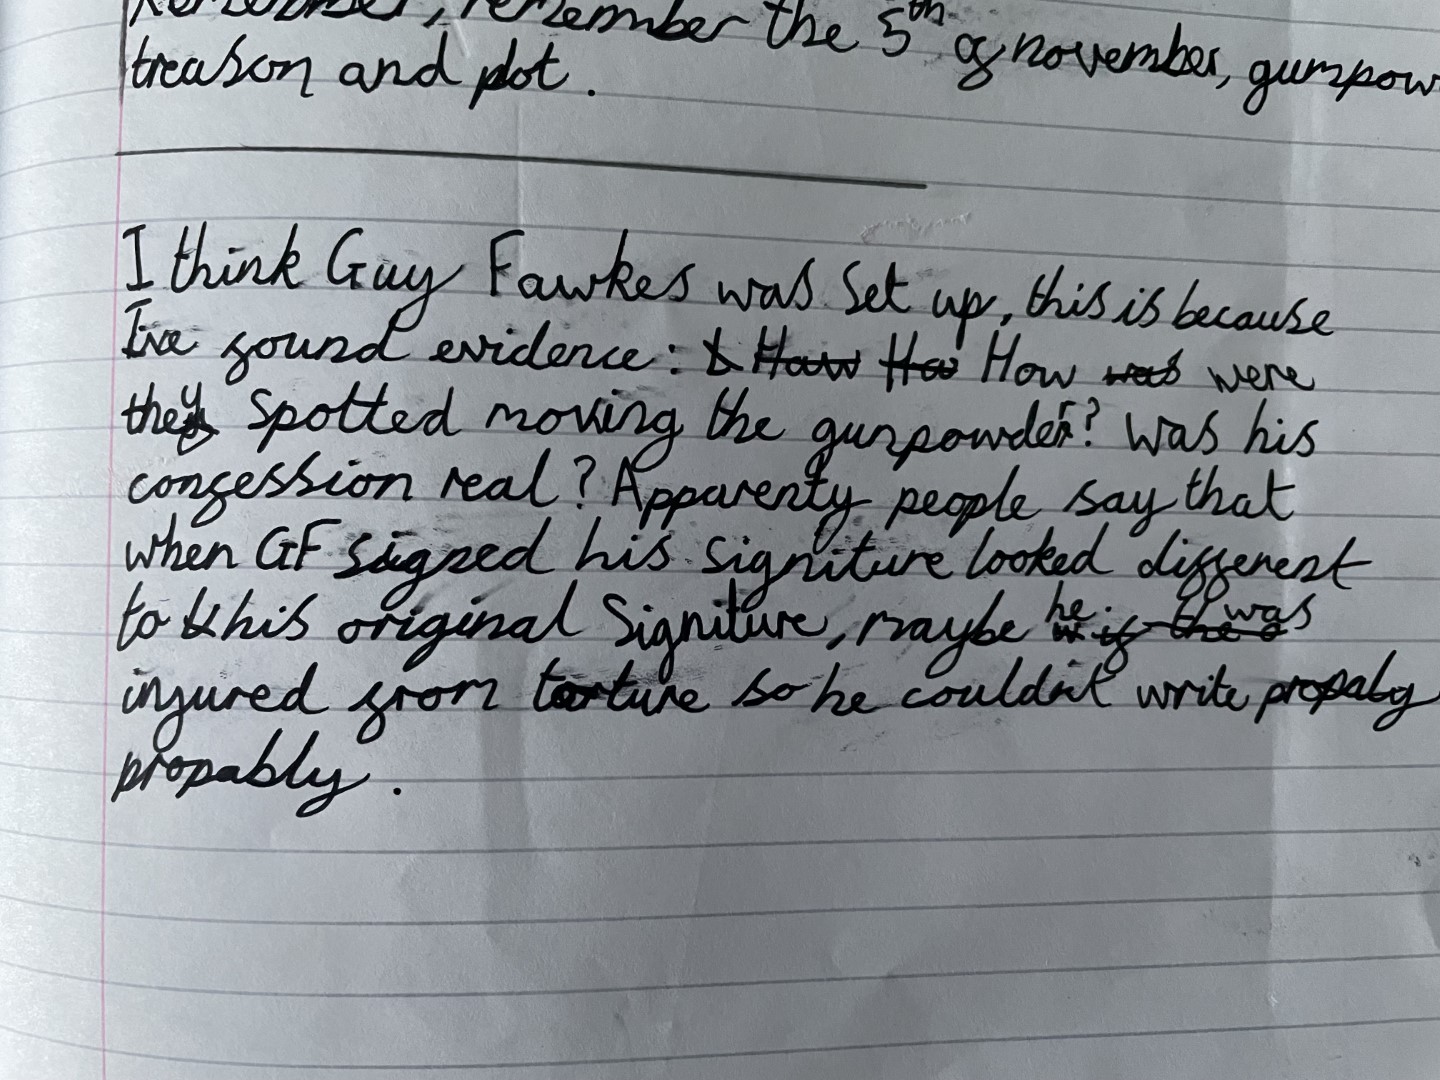 Remember, remember the 5th of november, gunpow
treason and plot.
I think Guy Fawkes was set up, this is because
I've found evidence: How were
they spotted moving the gunpowder? Was his
confession real? Apparenty people say that
when GF signed his signiture looked different
to his original Signiture, maybe he was
injured from torture so he couldn't write propaby
propably.